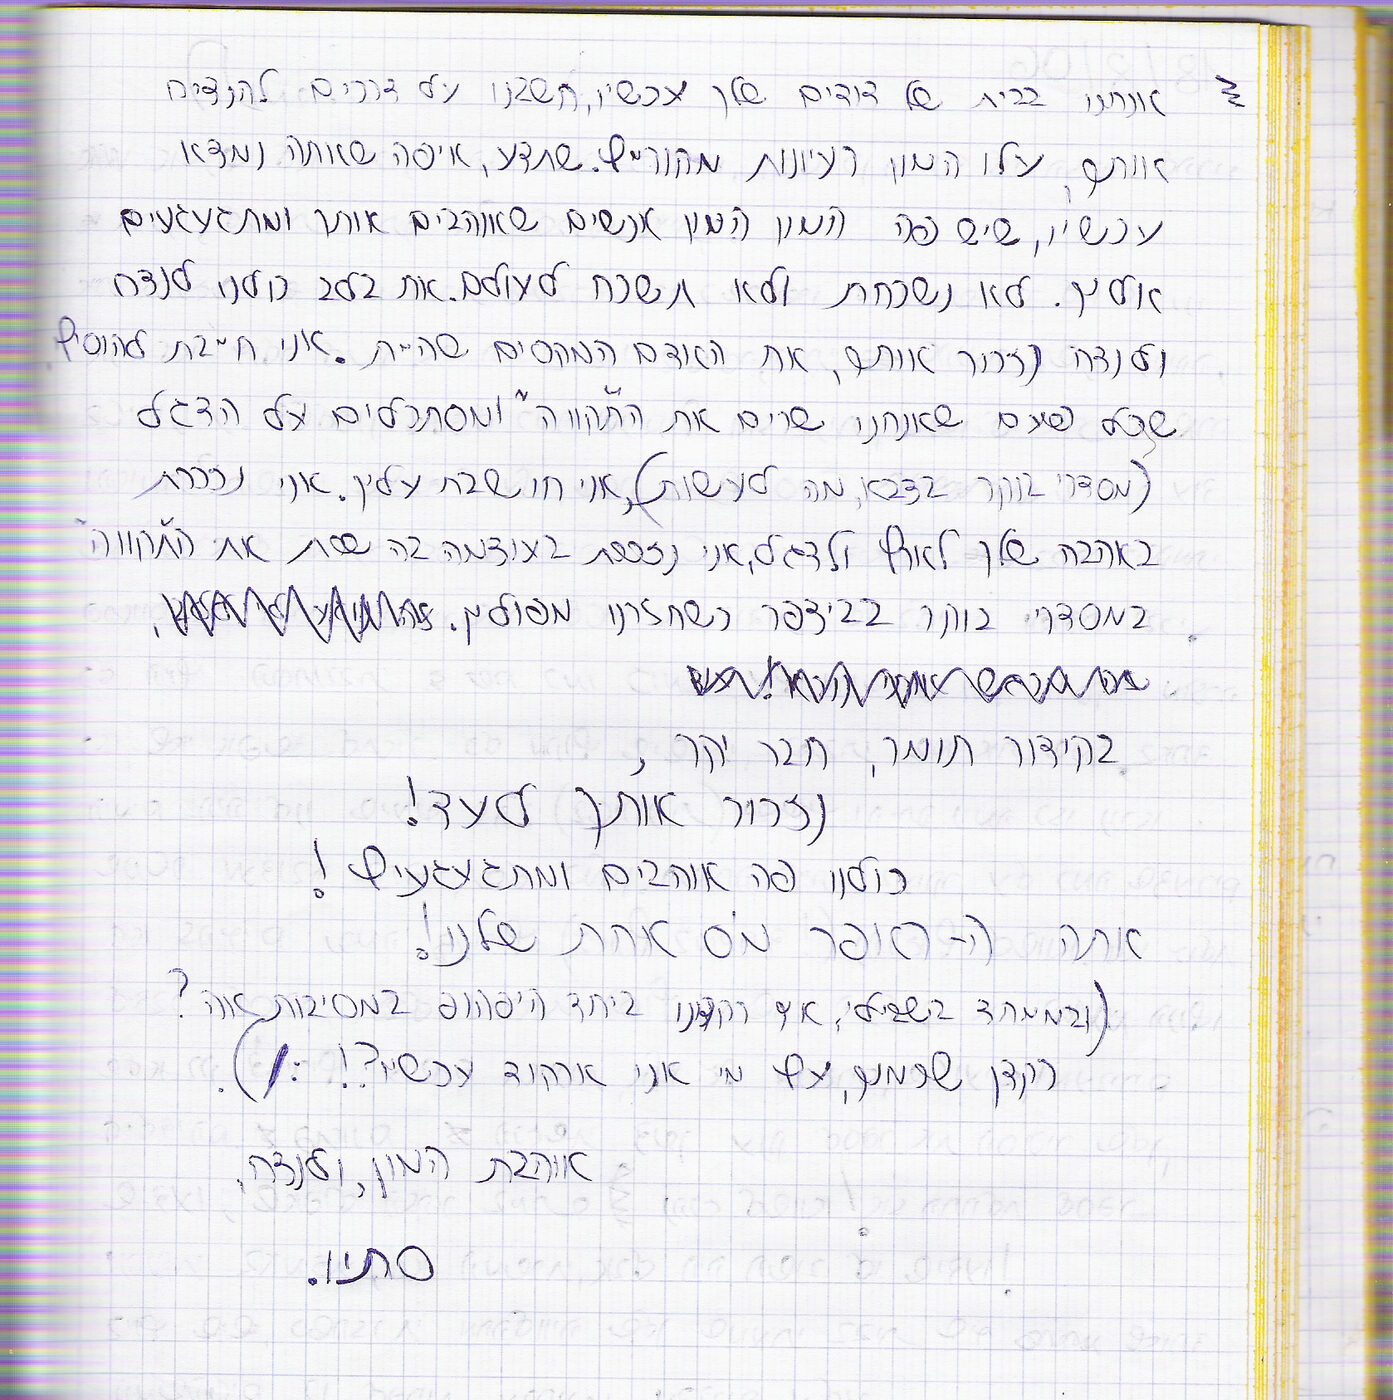 אנחנו בבית של דודים שלך עכשיו, חשבנו על דרכים להנציח
אותך, עלו המון רעיונות מקוריים. שתדע, איפה שאתה נמצא
עכשיו, שיש פה המון המון אנשים שאוהבים אותך ומתגעגעים
אליך. לא נשכחת ולא תשכח לעולם. את בלב כולנו לנצח
ולנצח נזכור אותך, את האדם המקסים שהיית. אני חייבת להוסיף
שכל פעם שאנחנו שרים את "התקווה" ומסתכלים על הדגל
(מסדרי בוקר בצבא, מה לעשות), אני חושבת עליך. אני נזכרת
באהבה שלך לארץ ולדגל, אני נזכרת בעוצמה בה שרת את "התקווה"
במסדרי בוקר בביצפר כשחזרנו מפולין.
בקידור תומר, חבר יקר,
נזכור אותך לעד!
כולנו פה אוהבים ומתגעגעים!
אתה ה- ראופר מס אחת שלנו!
(ובמיוחד בשבילי, איך רקדנו ביחד היפהופ במסיבות אה?
רקדן שכמוך, עם מי אני ארקוד עכשיו?! :/).
אוהבת המון, ולנצח,
סתיו.